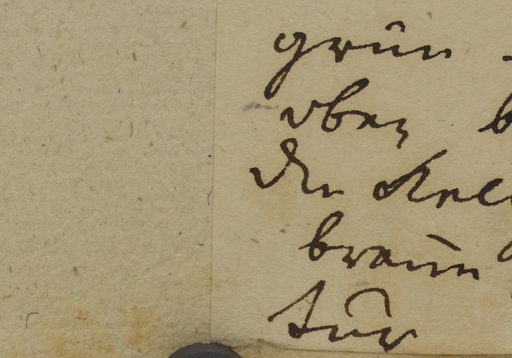 grün
oben
Die Kel
braun